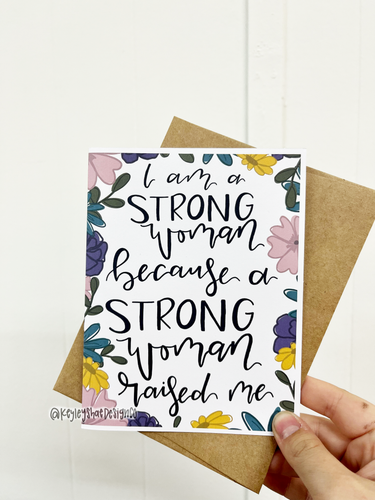 I am a
STRONG
woman
because a
STRONG
woman
raised me